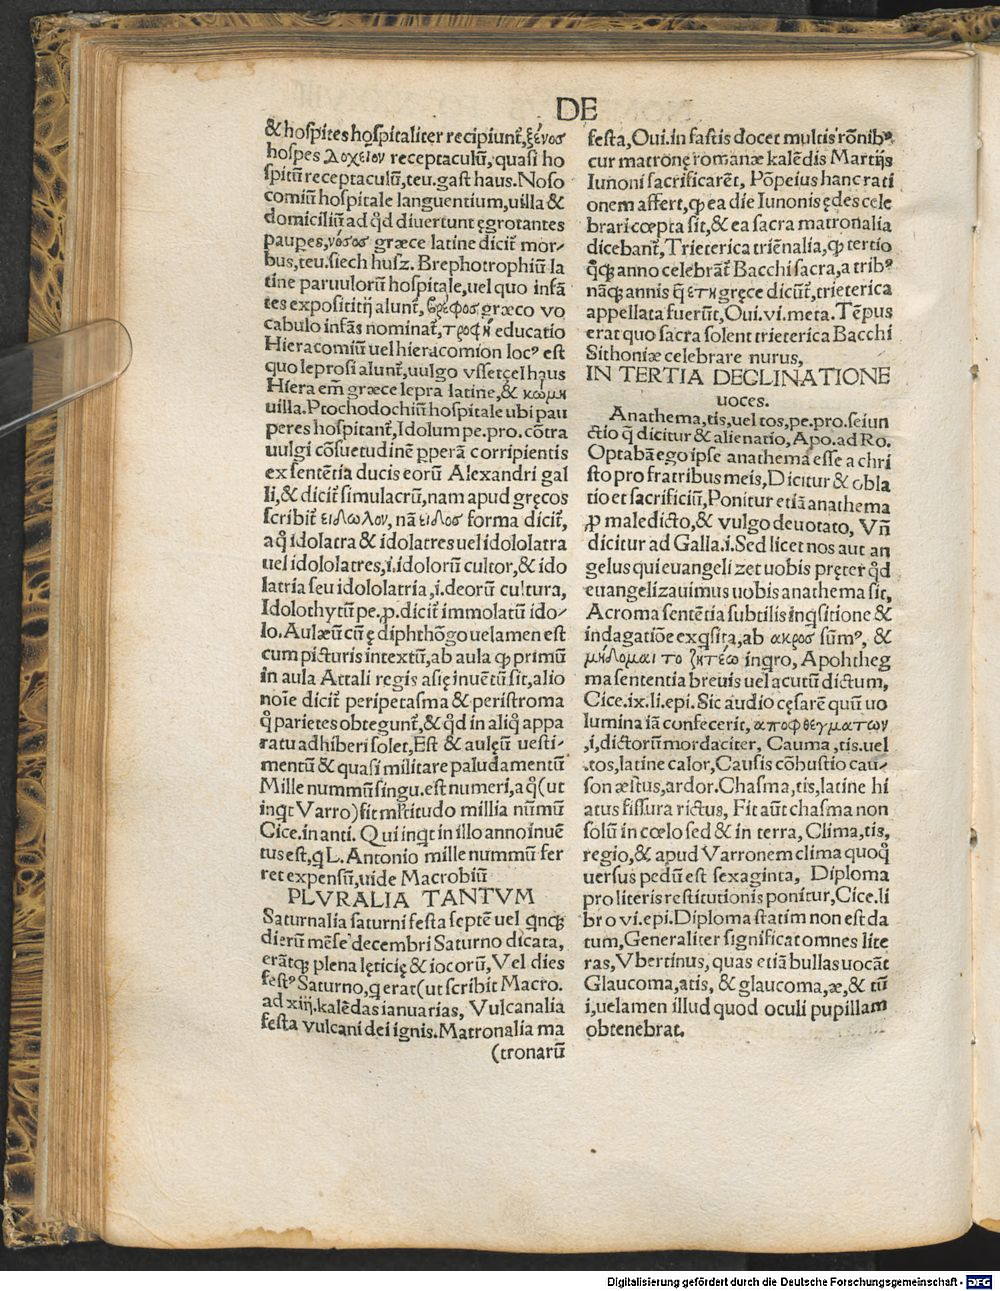 DE
& hoſpites hoſpitaliter recipiunt᷑, ξένοσ
hoſpes Δοχειον receptaculū, quaſi ho
ſpitū receptaculū, teu. gaſt haus. Noſo
comiū hoſpitale languentium, uilla &
domiciliū ad qd̛ diuertunt ęgrotantes
paupes, νόσοσ græce latine dicit᷑ mor⸗
bus, teu. ſiech huſz. Brephotrophiū la
tine paruulorū hoſpitale, uel quo infā
tes expoſititij alunt᷑, βρέφοσ græco vo
cabulo infās nominat᷑, τροφή educatio
Hieracomiū uel hieracomion locꝰ eſt
quo leproſi alunt᷑, uulgo vſſetęel haus
Hiera em̄ græce lepra latine, & κωμη
uilla. Ptochodochiū hoſpitale ubi pau
peres hoſpitant᷑, Idolum pe. pro. cōtra
uulgi cōſuetudinē ꝑperā corripientis
ex ſentētia ducis eorū Alexandri gal
li, & dicit᷑ ſimulacrū, nam apud gręcos
ſcribit᷑ ειδωλον, nā ειδοσ forma dicit᷑,
a q̇ idolatra & idolatres uel idololatra
uel idololatres, .i. idolorū cultor, & ido
latria ſeu idololatria, .i. deorū cultura,
Idolothytū pe, ꝓ. dicit᷑ immolatū ido⸗
lo. Aulæū cū ę diphthōgo uelamen eſt
cum picturis intextū, ab aula ꝙ primū
in aula Attali regis aſię inuētū ſit, alio
noīe dicit᷑ peripetaſma & periſtroma
q̇ parietes obtegunt᷑, & qd̛ in aliq̇ appa
ratu adhiberi ſolet, Eſt & aulęū ueſti⸗
mentū & quaſi militare paludamentū
Mille nummū ſingu. eſt numeri, a q̇ (ut
inqt Varro) fit mltitudo millia nūmū
Cice. in anti. Qui inqt in illo anno inuē
tus eſt, q L. Antonio mille nummū fer
ret expenſū, uide Macrobiū
PLVRALIA TANTVM
Saturnalia ſaturni feſta ſeptē uel qnqꝫ
dierū mēſe decembri Saturno dicata,
erātqꝫ plena lęticię & iocorū, Vel dies
feſtꝰ Saturno, q erat (ut ſcribit Macro.
ad xiij. kalēdas ianuarias, Vulcanalia
feſta vulcani dei ignis. Matronalia ma
(tronarū
feſta, Oui. in faſtis docet multis rōnibꝰ
cur matronę romanæ kalēdis Martijs
Iunoni ſacrificarēt, Pōpeius hanc rati
onem affert, ꝙ ea die Iunonis ędes cele
brari cœpta ſit, & ea ſacra matronalia
dicebant᷑, Trieterica triēnalia, ꝙ tertio
q̇qꝫ anno celebrāt᷑ Bacchi ſacra, a tribꝰ
nāqꝫ annis q̄ ετη gręce dicūt᷑, trieterica
appellata fuerūt, Oui. vi. meta. Tēpus
erat quo ſacra ſolent trieterica Bacchi
Sithoniæ celebrare nurus,
IN TERTIA DECLINATIONE
uoces.
Anathema, tis, uel tos, pe. pro. ſeiun
ctio q̄ dicitur & alienatio, Apo. ad Ro.
Optabā ego ipſe anathema eſſe a chri
ſto pro fratribus meis, Dicitur & obla
tio et ſacrificiū, Ponitur etiā anathema
ꝓ maledicto, & vulgo deuotato, Vn̄
dicitur ad Galla. i. Sed licet nos aut an
gelus qui euangelizet uobis pręter qd̛
euangelizauimus uobis anathema ſit,
Acroma ſentētia ſubtilis inqſitione &
indagatiōe exqſita, ab ακροσ ſūmꝰ, &
μηδομαι το ζητέω inqro, Apohtheg
ma ſententia breuis uel acutū dictum,
Cice. ix. li. epi. Sic audio cęſarē quū uo
lumina iā confecerit, αποφθεγματων
,i, dictorū mordaciter, Cauma, tis. uel
.tos, latine calor, Cauſis cōbuſtio cau⸗
ſon æſtus, ardor. Chaſma, tis, latine hi
atus fiſſura rictus, Fit aūt chaſma non
ſolū in cœlo ſed & in terra, Clima, tis,
regio, & apud Varronem clima quoq̇
uerſus pedū eſt ſexaginta, Diploma
pro literis reſtitutionis ponitur, Cice. li
bro vi. epi. Diploma ſtatim non eſt da
tum, Generaliter ſignificat omnes lite
ras, Vbertinus, quas etiā bullas uocāt
Glaucoma, atis, & glaucoma, æ, & tū
i, uelamen illud quod oculi pupillam
obtenebrat.
Digitalisierung gefördert durch die Deutsche Forschungsgemeinschaft - DFG